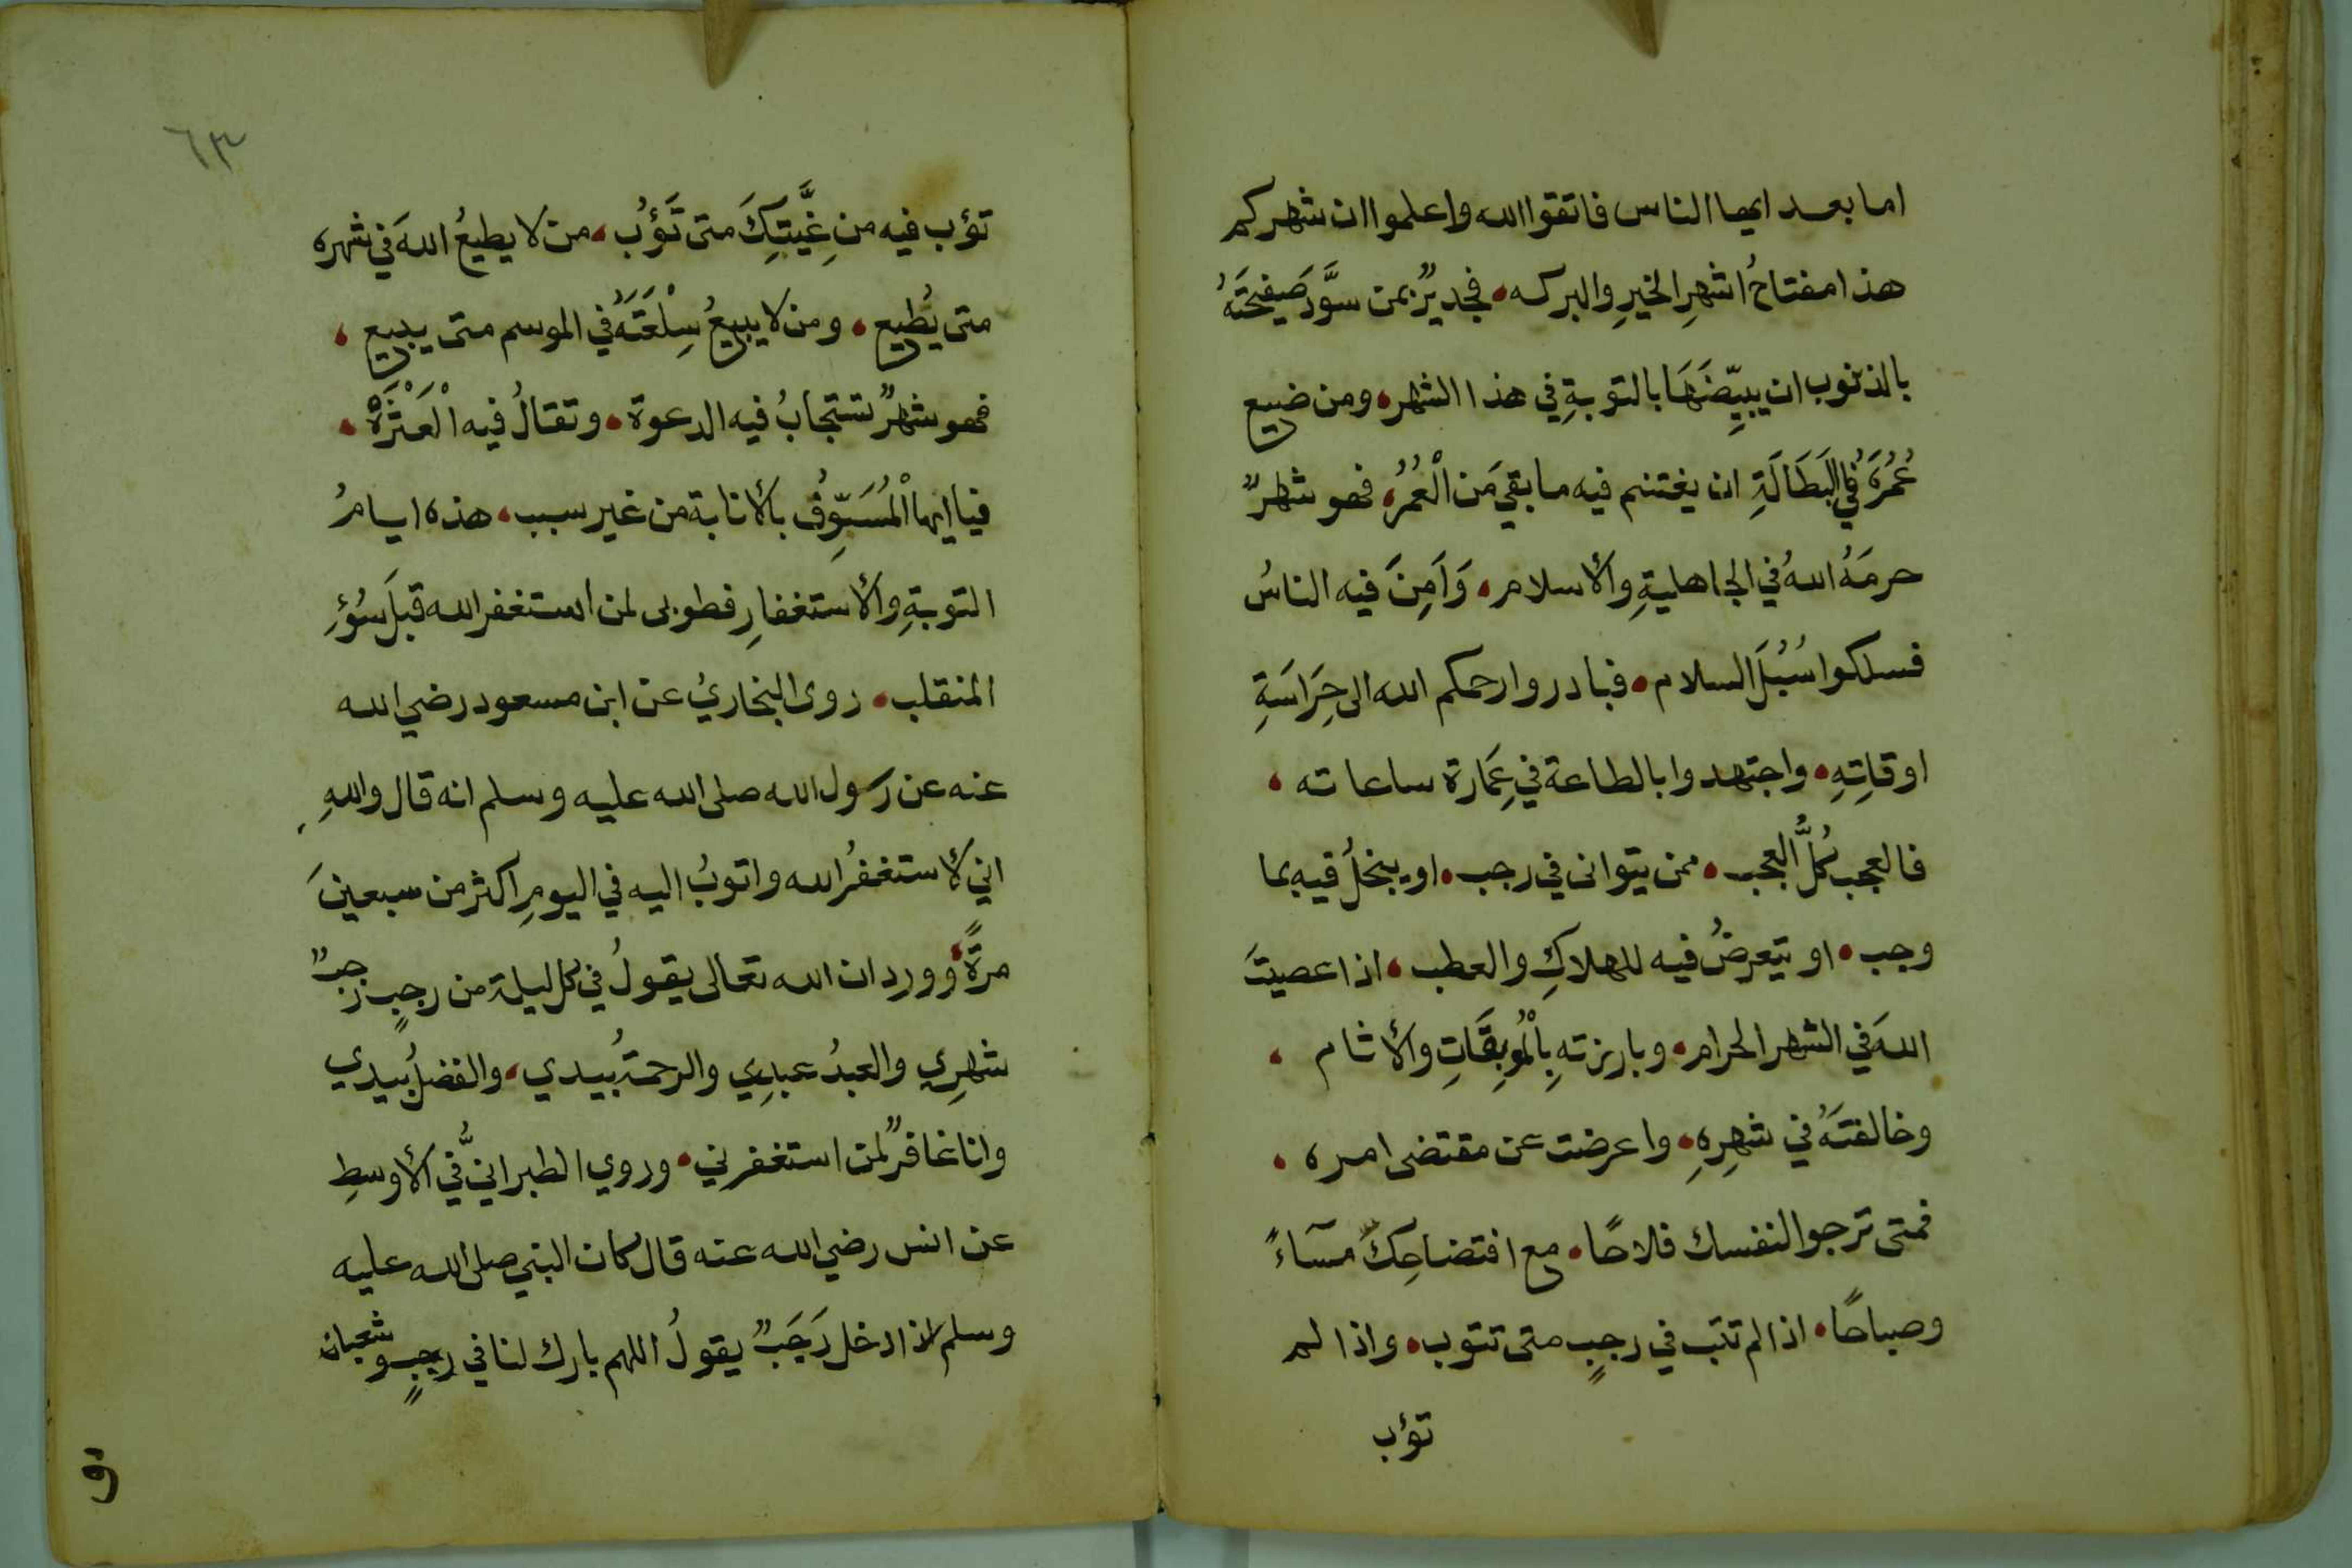 اما بعد ايها الناس فاتقوا الله واعلموا ان شهركم
هذا مفتاحُ اشهرِ الخيرِ والبركه، فجديرٌ بمن سوَّدَ صَحِيفَتَهُ
بالذنوب ان يبيِّضَهَا بالتوبةِ في هذا الشهر، ومن ضيع
عُمُرَهُ في البَطَالَةِ ان يغتنم فيه ما بقي مَن الْعُمُرُ، فهو شهرٌ
حرمَهُ اللهُ في الجاهليةِ والأسلام، وَاَمِنَ فيه الناسُ
فسلكوا سُبُلَ السلام، فبادروا رحمكم الله الى حِرَاسَةِ
اوقاتِهِ، واجتهدوا بالطاعة في عِمَارة ساعاته،
فالعجب كُلُّ العجب، ممن يتوانى في رجب، او يبخلُ فيه بما
وجب، او يتعرضُ فيه للهلاكِ والعطب، اذا عصيتَ
اللهَ في الشهر الحرام، وبارزته بِالْمُوبِقَاتِ والأثام،
وخالفتَهُ في شهرِهِ، واعرضت عن مقتضى امره،
فمتى ترجوا لنفسك فلاحًا، مع افتضاحِكَ مسآءً
وصباحًا، اذا لم تتب في رجبٍ متى تتوب، واذا لم
تؤب
٦٣
تؤب فيه من غَيَّتِكَ متى تَؤُب، من لا يطيعُ اللهَ في شهره
متى يُطيع، ومن لا يبيعُ سِلْعَتَهُ في الموسم متى يبيع،
فهو شهرٌ تستجابُ فيه الدعوة، وتقالُ فيه الْعَثْرَةْ،
فيا ايها الْمُسَوِّفُ بالأنابة من غير سبب، هذه ايامُ
التوبةِ والأستغفارِ فطوبى لمن استغفر الله قبلَ سُؤِ
المنقلب، روى البخاريُ عن ابن مسعود رضي الله
عنه عن رسول الله صلى الله عليه وسلم انه قال واللهِ
اني لأستغفرُ الله واتوبُ اليه في اليومِ اكثر من سبعينَ
مرةً، وورد ان الله تعالى يقولُ في كل ليلة من رجبٍ رجبٌ
شهرِي والعبدُ عبدِي والرحمةُ بيدي، والفضلُ بيدي
وانا غافرٌ لمن استغفرني، وروي الطبرانيُّ في الأوسطِ
عن انس رضي الله عنه قال كان النبي صلى الله عليه
وسلم اذا دخل رَجَبٌ يقولُ اللهم بارك لنا في رجبٍ وشعبان